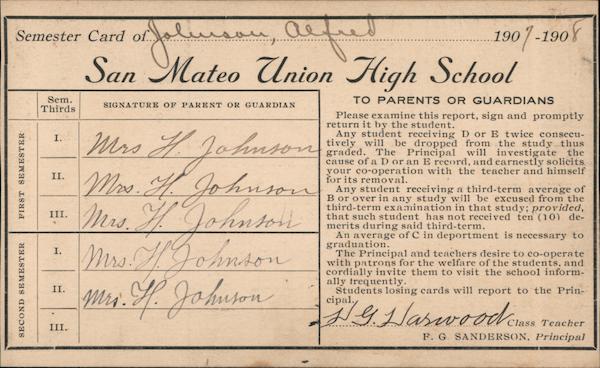 Semester Card of Johnson, Alfred 1907-1908
San Mateo Union High School
Sem. Thirds
SIGNATURE OF PARENT OR GUARDIAN
FIRST SEMESTER
I. Mrs H. Johnson
II. Mrs. H. Johnson
III. Mrs. H. Johnson
SECOND SEMESTER
I. Mrs. H. Johnson
II. Mrs. H. Johnson
III.
TO PARENTS OR GUARDIANS
Please examine this report, sign and promptly
return it by the student.
Any student receiving D or E twice consecu-
tively will be dropped from the study thus
graded. The Principal will investigate the
cause of a D or an E record, and earnestly solicits
your co-operation with the teacher and himself
for its removal.
Any student receiving a third-term average of
B or over in any study will be excused from the
third-term examination in that study; provided,
that such student has not received ten (10) de-
merits during said third-term.
An average of C in deportment is necessary to
graduation.
The Principal and teachers desire to co-operate
with patrons for the welfare of the students, and
cordially invite them to visit the school inform-
ally frequently.
Students losing cards will report to the Prin-
cipal.
H G. Harwood Class Teacher
F. G. SANDERSON, Principal